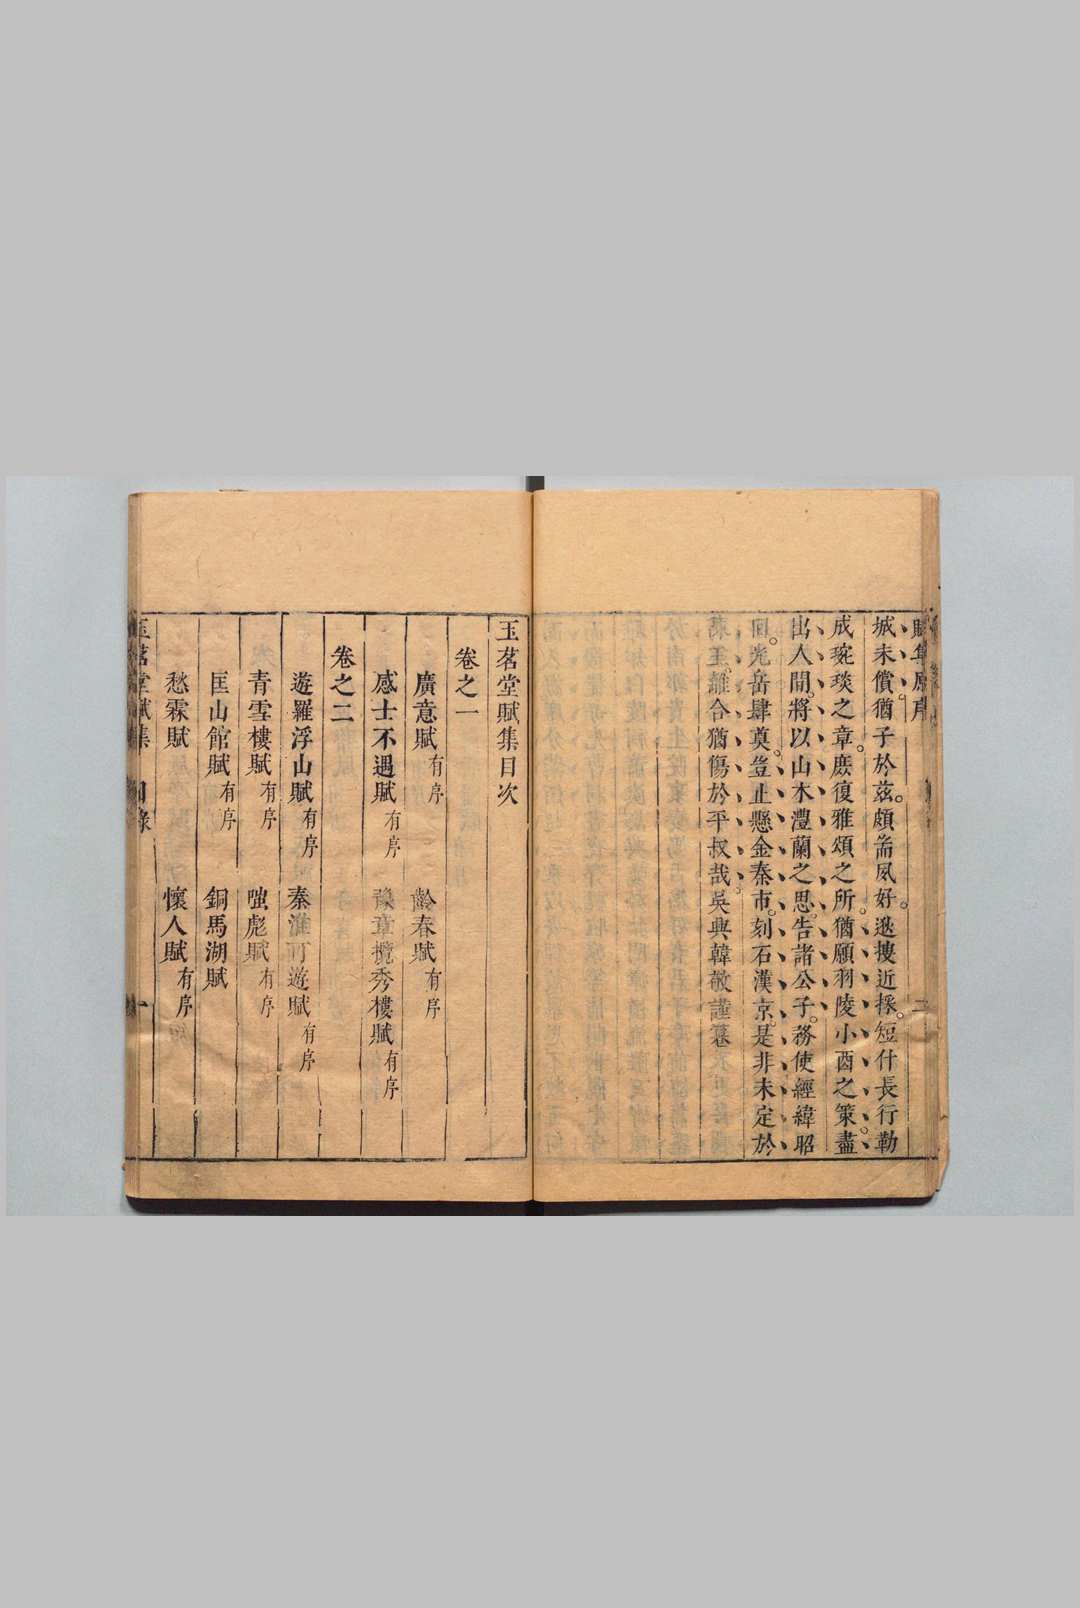 城未償猶子於茲頗耑夙好遂摟近採短什長行勒
成琬琰之章庶復雅頌之所猶願羽陵小酉之策盡
出人間將以山木澧蘭之思告諸公子務使經緯昭
回光岳肆奠豈止懸金秦市刻石漢京是非未定於
蕭王離合猶傷於平叔哉吳興韓敬謹纂
玉茗堂賦集目次
卷之一
廣意賦有序
齡春賦有序
感士不遇賦有序
豫章攬秀樓賦有序
卷之二
遊羅浮山賦有序
秦淮可遊賦有序
青雪樓賦有序
嗤彪賦有序
匡山館賦有序
銅馬湖賦
愁霖賦
懷人賦有序
玉茗堂賦集 目錄 一